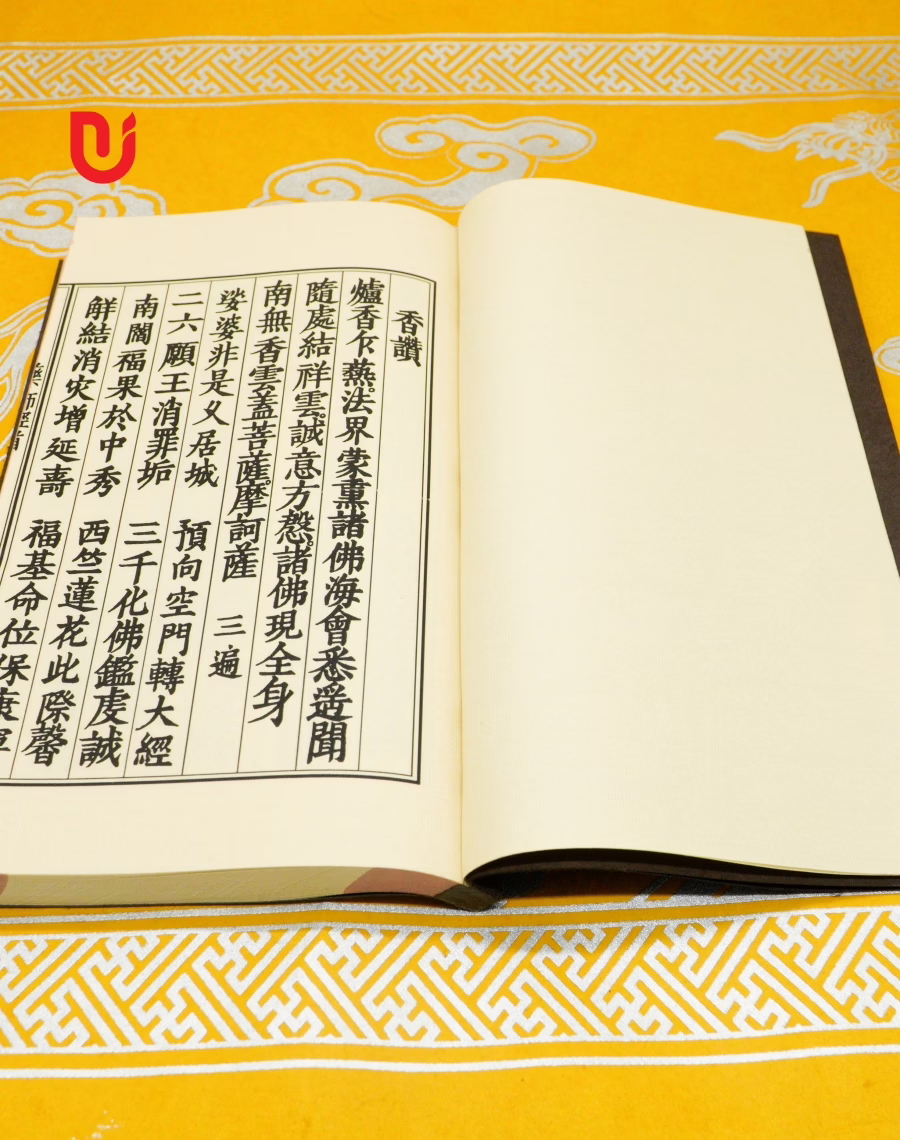 香讚
爐香乍爇法界蒙熏諸佛海會悉遥聞
隨處結祥雲誠意方慇諸佛現全身
南無香雲盖菩薩摩訶薩 三遍
娑婆非是乆居城 預向空門轉大經
二六願王消罪垢 三千化佛鑑虔誠
南閻福果於中秀 西竺蓮花此際馨
觧結消灾增延壽 福基命位保康